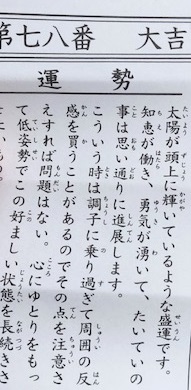 第七八番　大吉
運勢
太陽が頭上に輝いているような盛運です。
知恵が働き、勇気が湧いて、たいていの
事は思い通りに進展します。
こういう時は調子に乗り過ぎて周囲の反
感を買うことがあるのでその点を注意さ
えすれば問題はない。心にゆとりをもっ
て低姿勢でこの好ましい状態を長続きさ